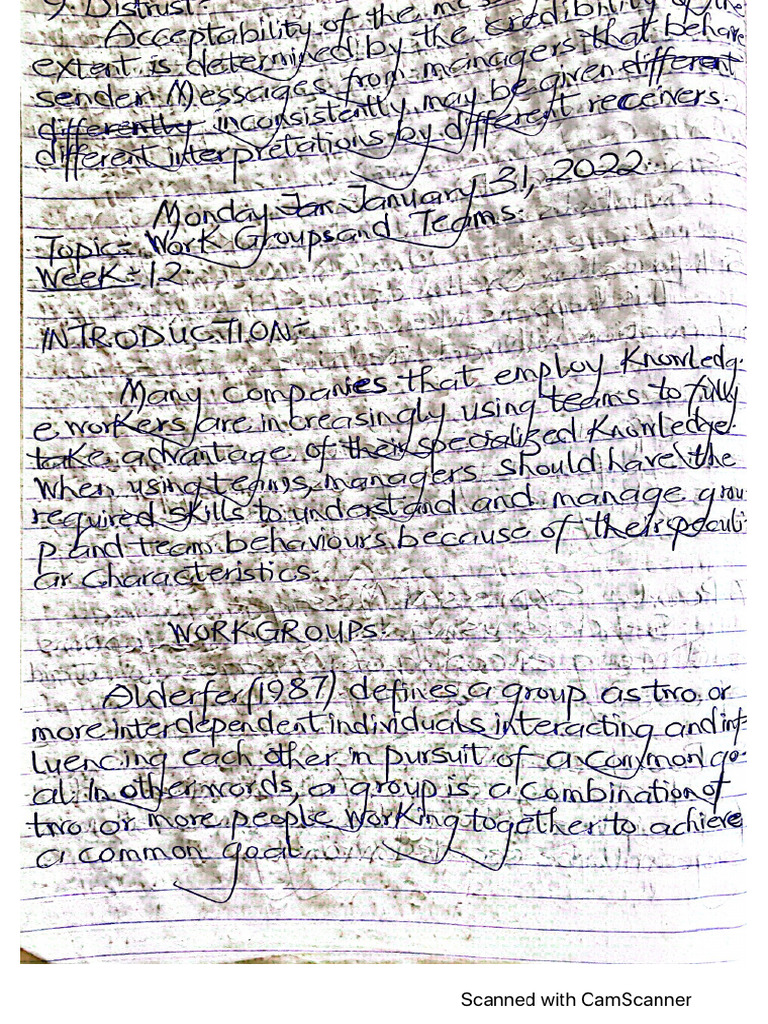 9. Distrust:
Acceptability of the
extent is determined by the credibility of the
sender. Messages from managers that behave
differently inconsistently may be given different
different interpretations by different receivers.
Monday Jan January 31, 2022.
Topic:- Work Groups and Teams.
Week:- 12.
INTRODUCTION:-
Many companies that employ Knowledg-
e workers are increasingly using teams to fully
take advantage of their specialized Knowledge.
When using teams, managers should have the
required skills to understand and manage grou-
p and team behaviours because of their peculi-
ar characteristics.
WORK GROUPS:
Alderfer (1987) defines a group as two or
more interdependent individuals interacting and inf-
luencing each other in pursuit of a common go-
al. In other words, a group is a combination of
two or more people working together to achieve
a common goal.
Scanned with CamScanner